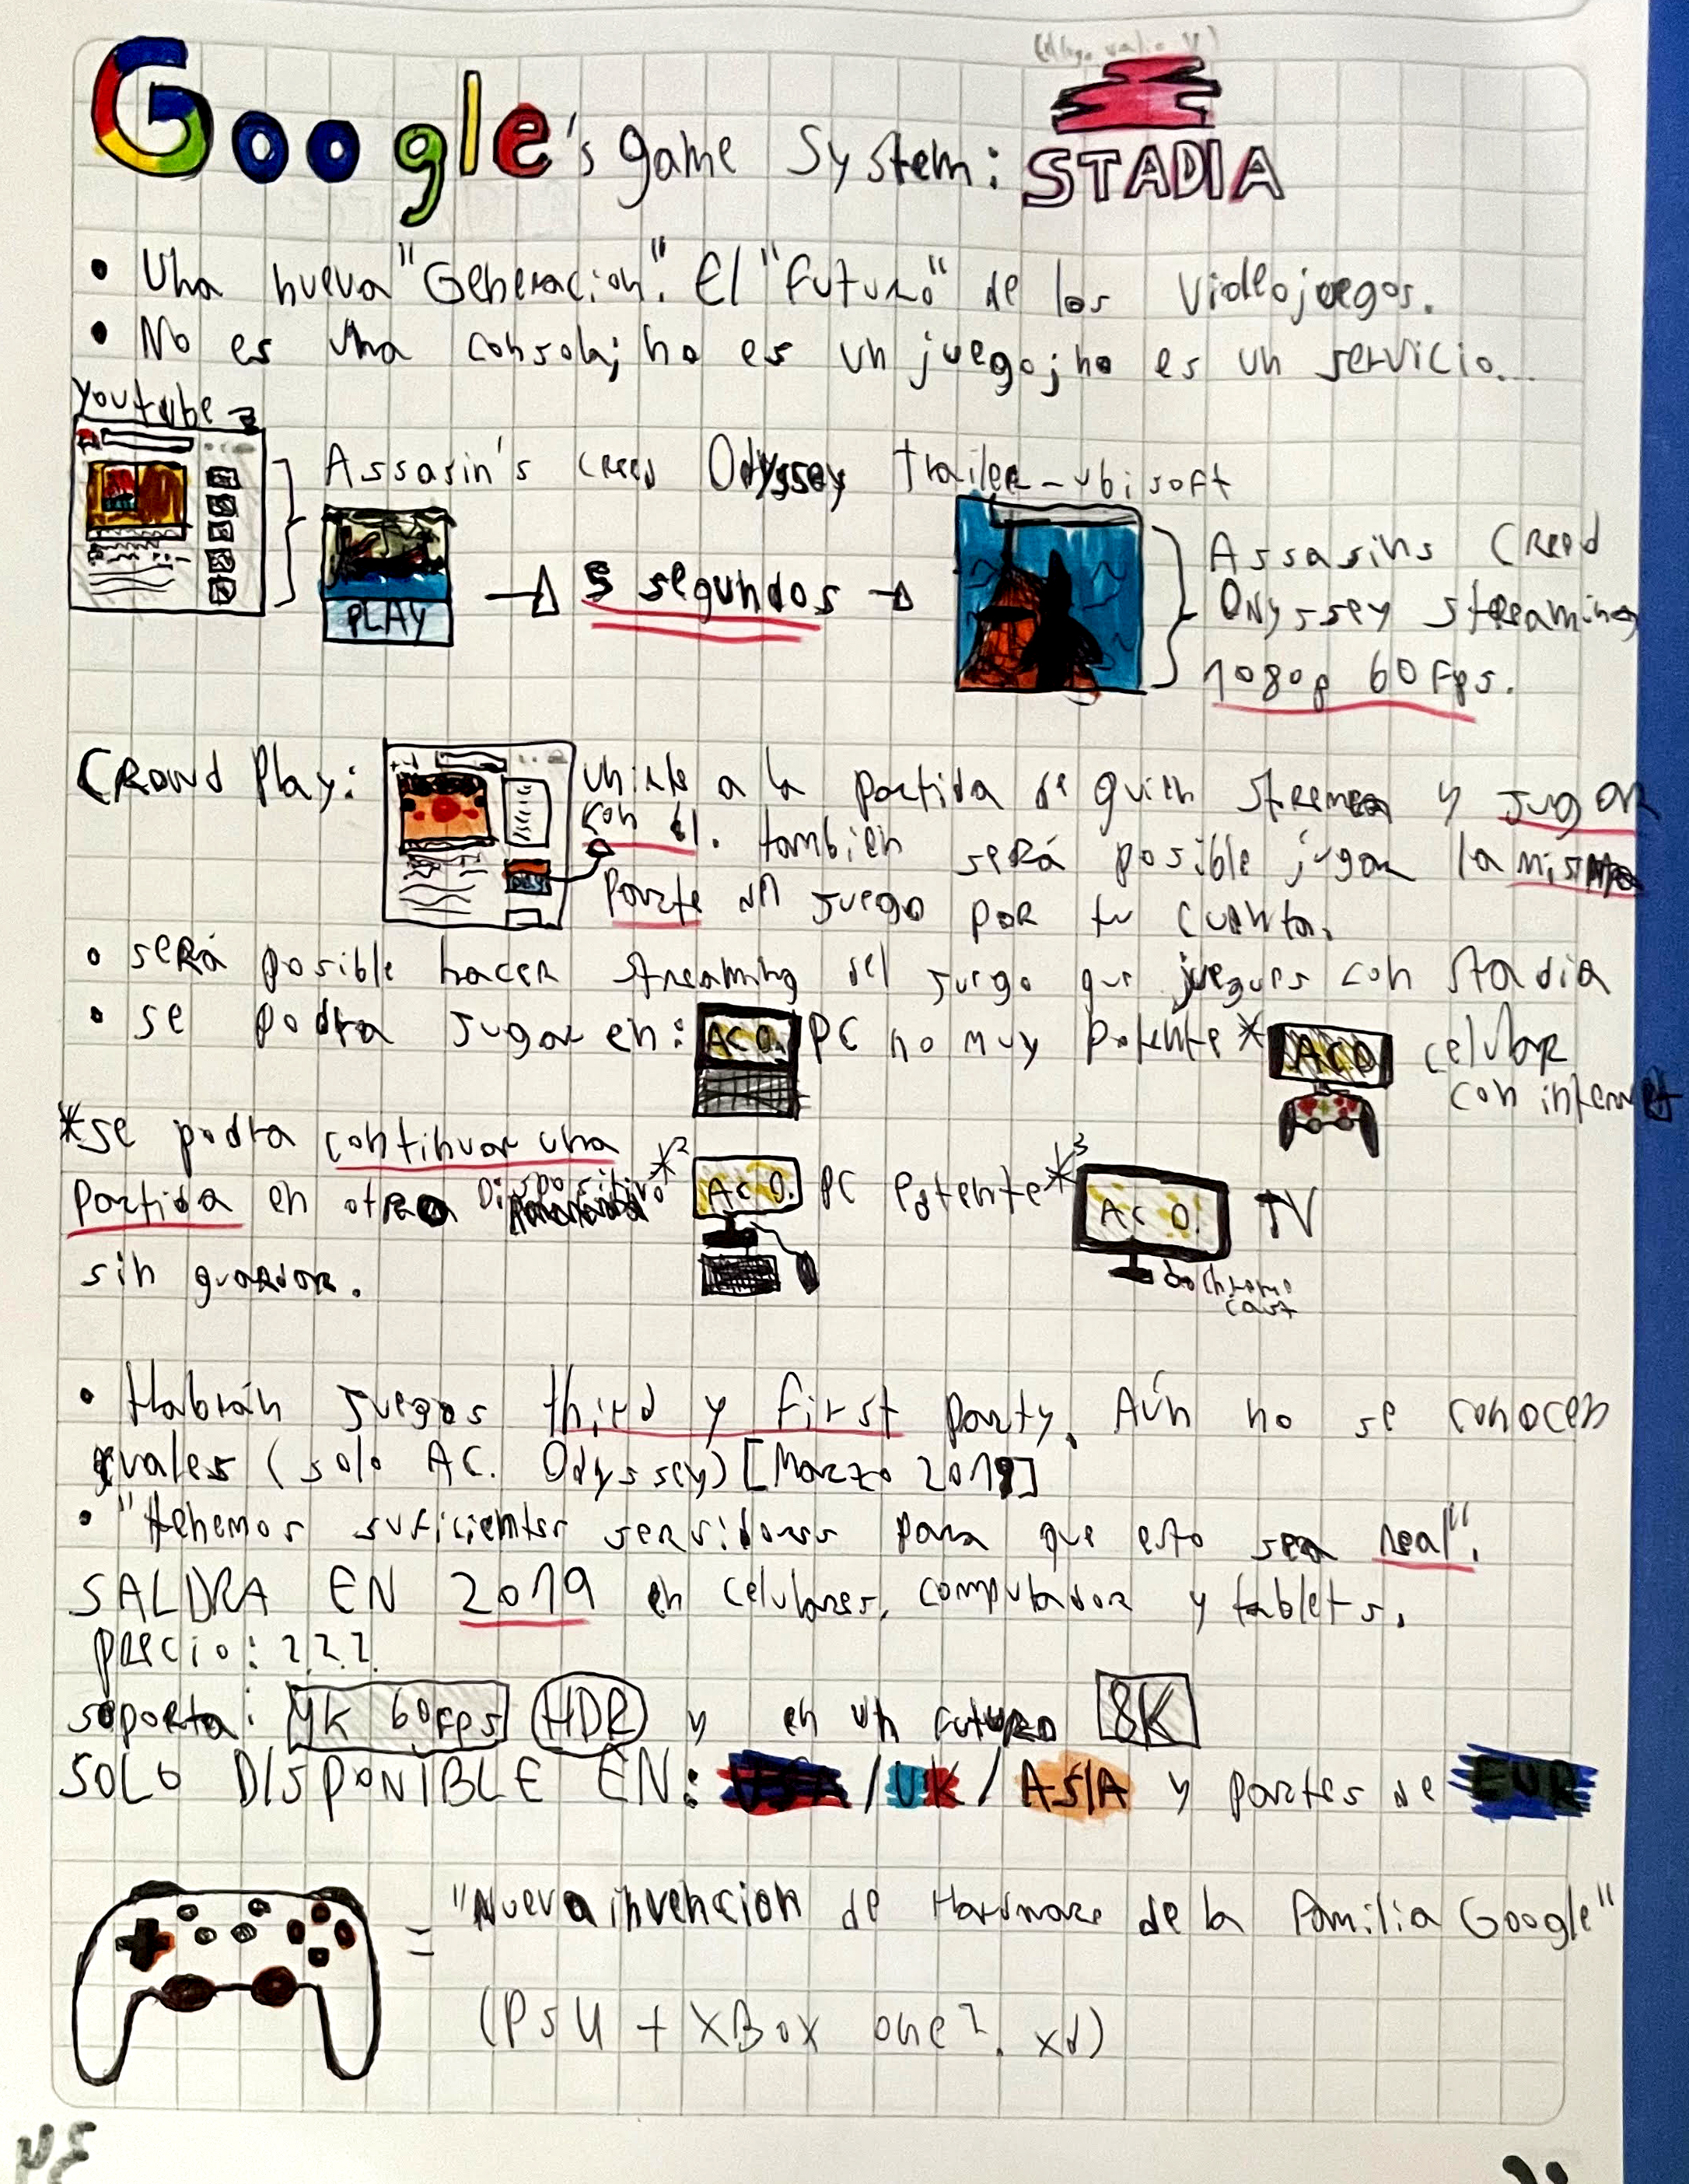 Google's game System: STADIA
• Una nueva "Generacion". El "futuro" de los videojuegos.
• No es una consola; no es un juego; no es un servicio...
youtube
Assasin's creed Odyssey trailer - ubisoft
PLAY
5 segundos
Assasins Creed
Odyssey streaming
1080p 60 Fps.
CROWD Play:
unirte a la partida de quien streamea y jugar
con él. también será posible jugar la misma
parte del juego por tu cuenta.
play
• será posible hacer streaming del juego que juegues con stadia
• se podra jugar en: AC O. PC no muy potente* AC O. celular
con internet
*se podra continuar una
partida en otro Dispositivo
sin guardar.
*2 AC O. PC Potente *3 AC O. TV
chrome
cast
• Habrán juegos third y first party. Aún no se conocen
cuales (solo AC. Odyssey) [Marzo 2019]
• "tenemos suficientes servidores para que esto sea real".
SALDRA EN 2019 en celulares, computador y tablets.
precio: ???
soporta: 4K 60fps HDR y en un futuro 8K
SOLO DISPONIBLE EN: USA / UK / ASIA y partes de EUR
= "Nueva invencion de Hardware de la Familia Google"
(PS4 + XBox one?. xd)